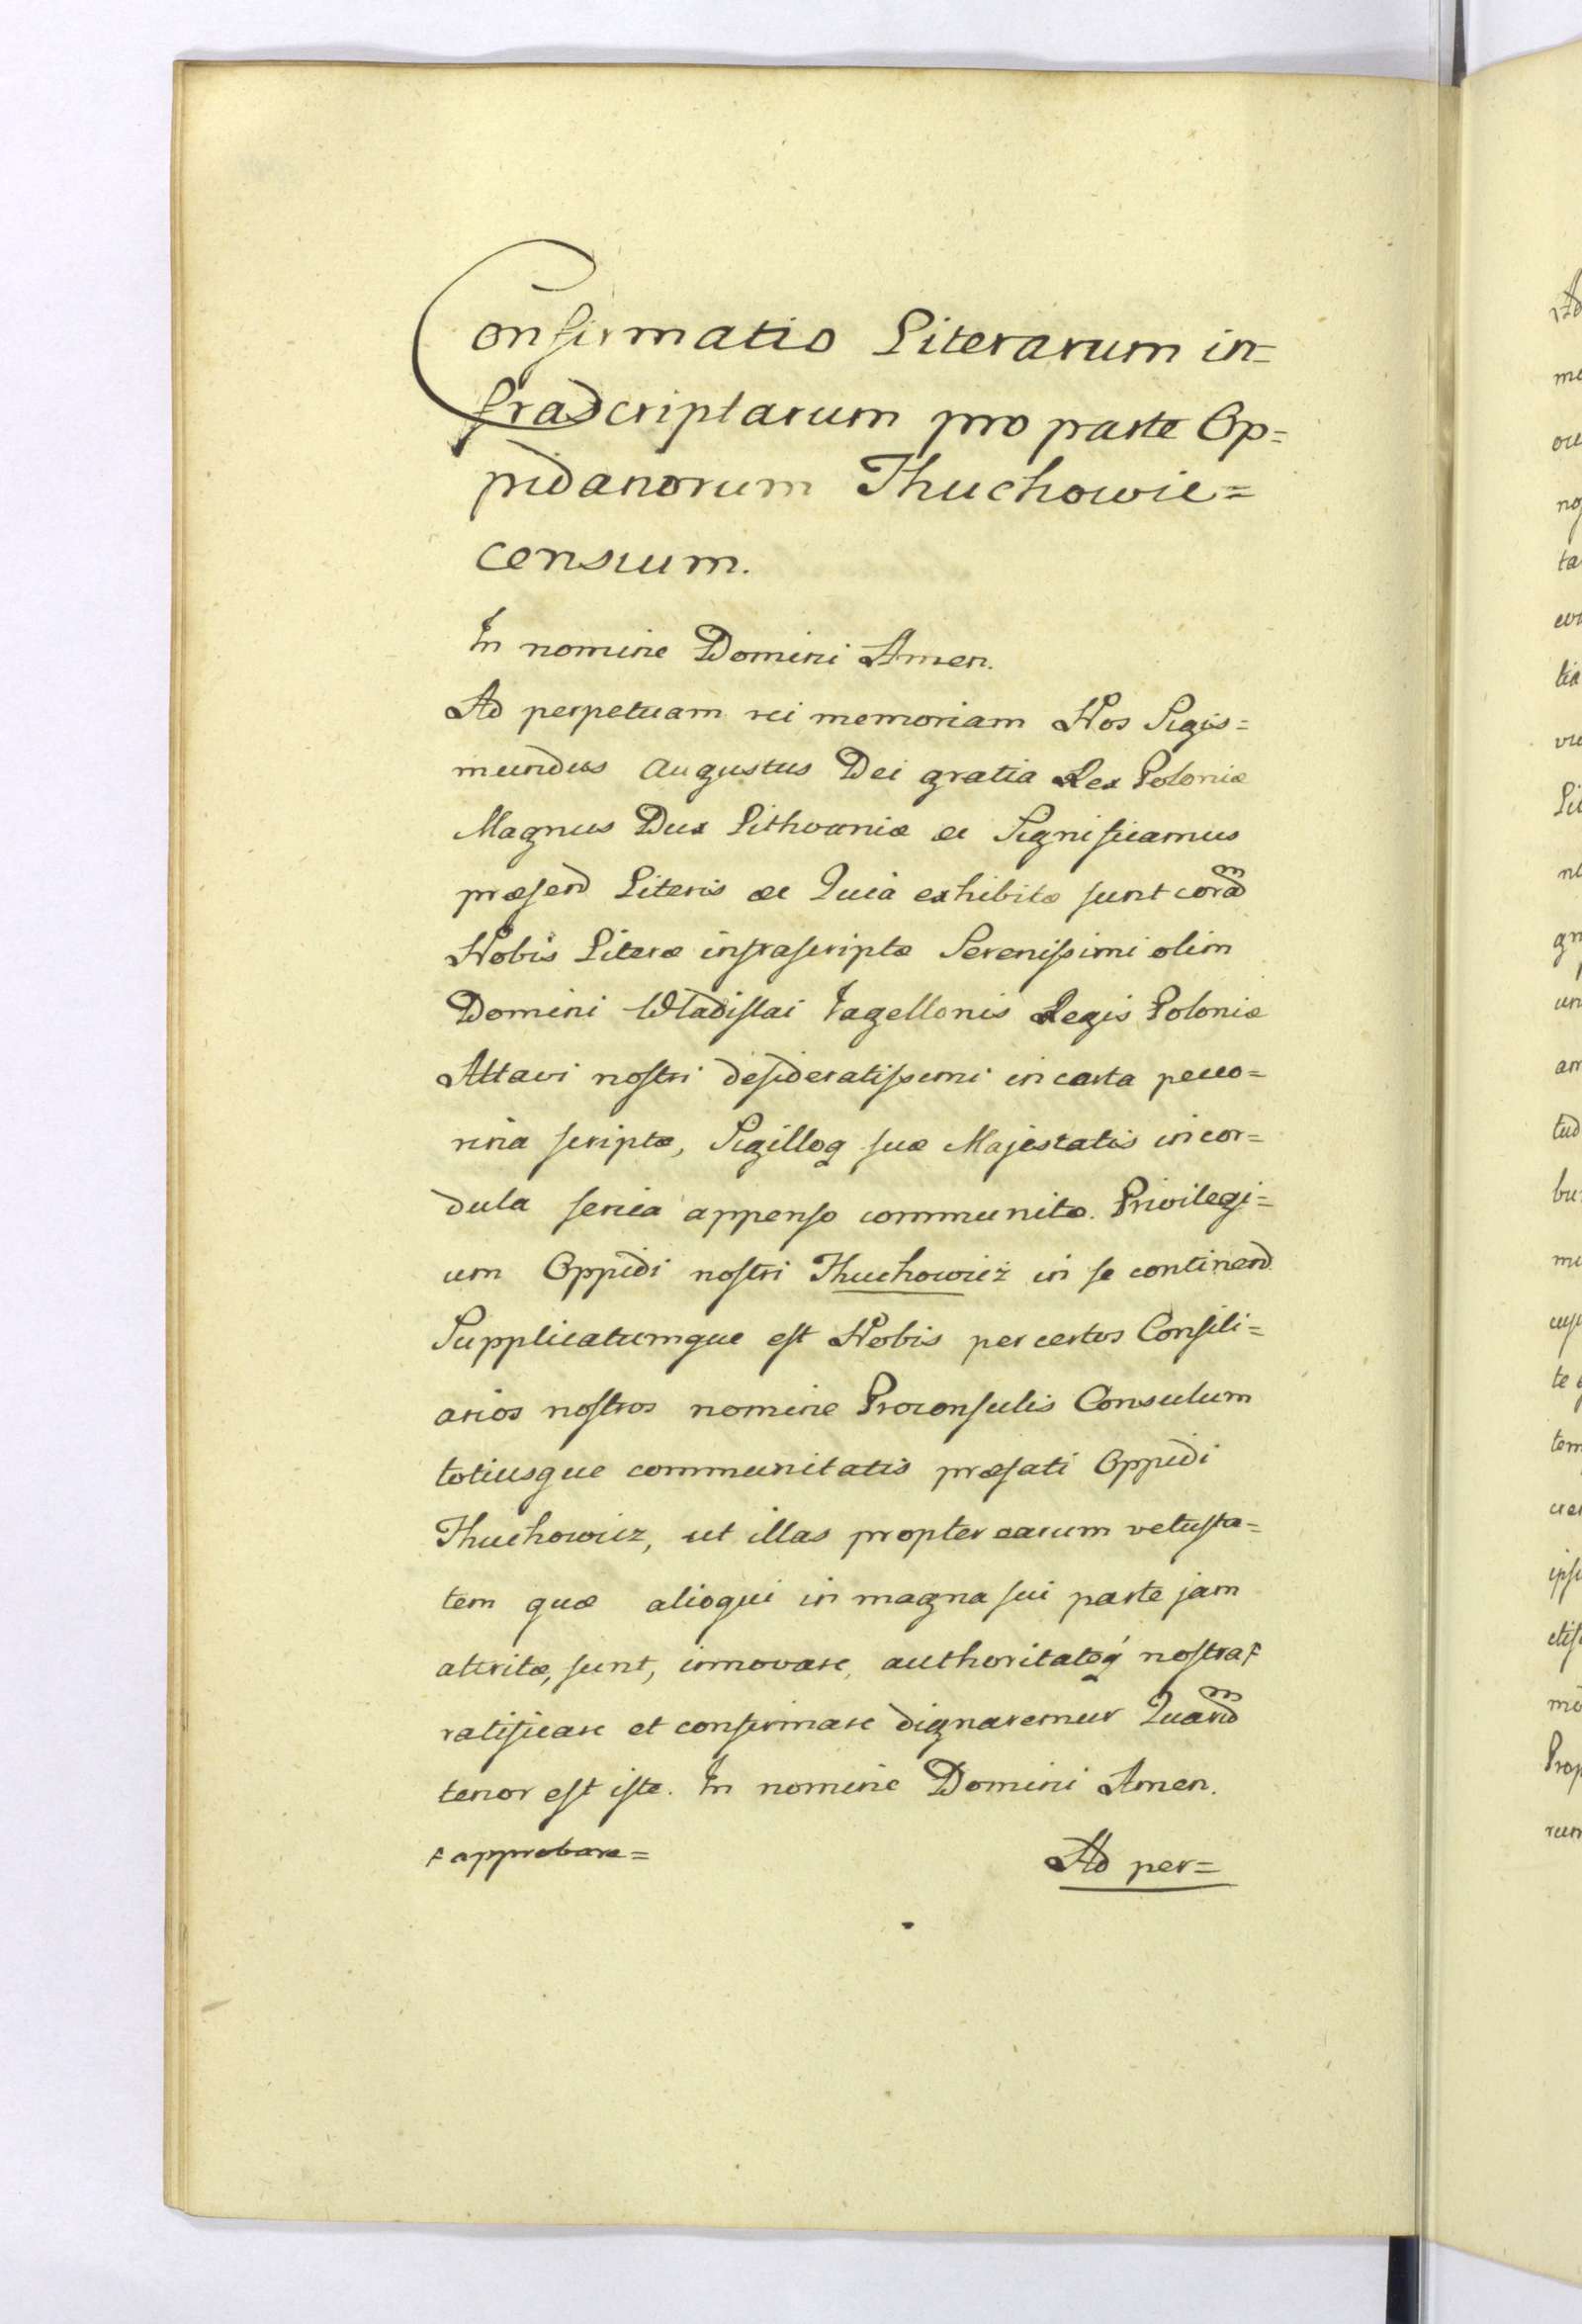 Confirmatio Literarum in=
frascriptarum pro parte Op=
pidanorum Thuchowie=
censium.
In nomine Domini Amen.
Ad perpetuam rei memoriam Nos Sigis=
mundus Augustus Dei gratia Rex Poloniæ
Magnus Dux Lithvaniæ &c Significamus
præsend Literis &c Quia exhibitæ sunt coram
Nobis Literæ infrascriptæ Serenissimi olim
Domini Wladislai Jagellonis Regis Poloniæ
Attavi nostri desideratissimi in carta pecco=
rina scriptæ, Sigilloq suæ Majestatis in cor=
dula sericia appenso communitæ. Privilegi=
um Oppidi nostri Thuchowicz in se continend
Supplicatumque est Nobis per certos Consili=
arios nostros nomine Proconsulis Consulum
totiusque communitatis præfati Oppidi
Thuchowicz, ut illas propter earum vetusta=
tem quæ alioqui in magna sui parte jam
attritæ, sunt, innovare, authoritateq́ nostra ⹋
ratificare et confirmare dignaremur Quarum
tenor est iste. In nomine Domini Amen.
⹋ approbare=
Ad per=